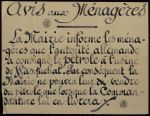 Avis aux Ménagères
La Mairie informe les ména-
gères que l'autorité allemande
a consigné le pétrole à l'usine
de Marfuchat. Par conséquent la
Mairie ne pourra leur en vendre
du pétrole que lorsque la Comman-
danture lui en livrera.